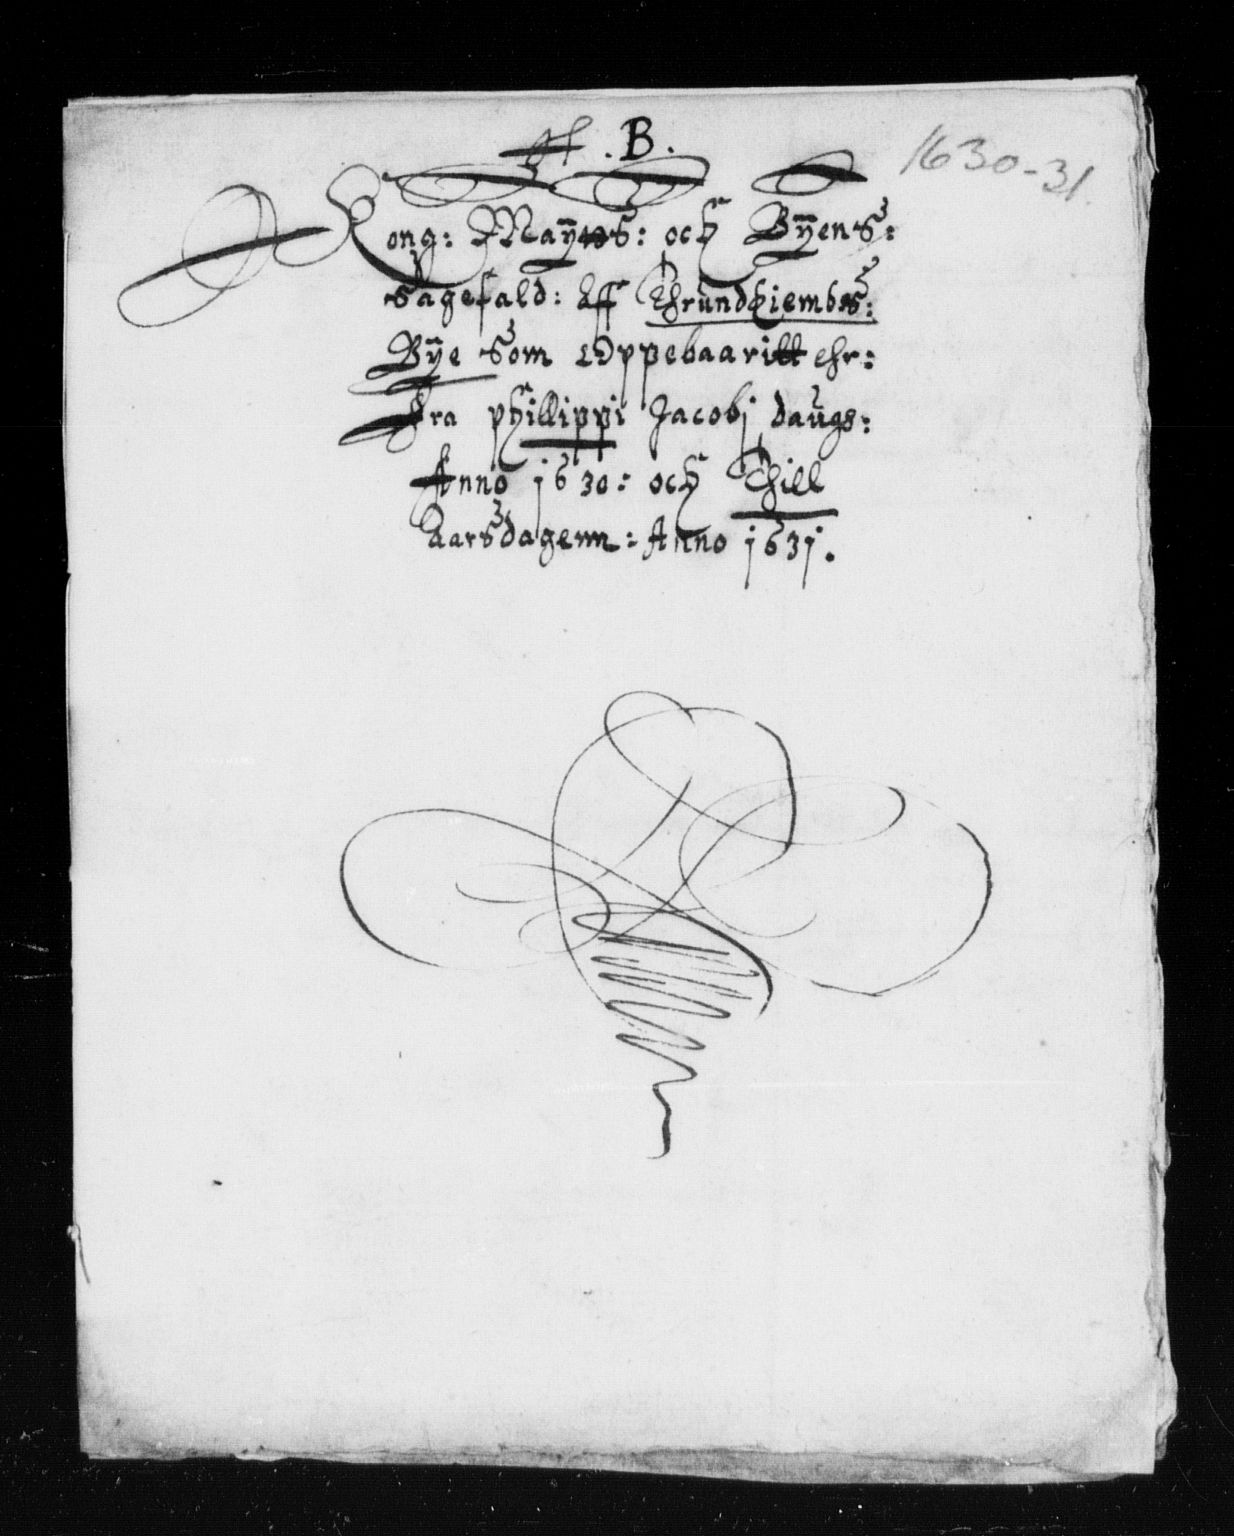 . B.
1630-31.
Kong: Maÿtts: och Bÿens:
Sagefald: Aff Thrundhiembs:
Bÿe Som Oppebaaritt ehr:
Fra phillippi Jacobi daugs:
Anno 1630: och Thill
Aarsdagenn: Anno 1631.